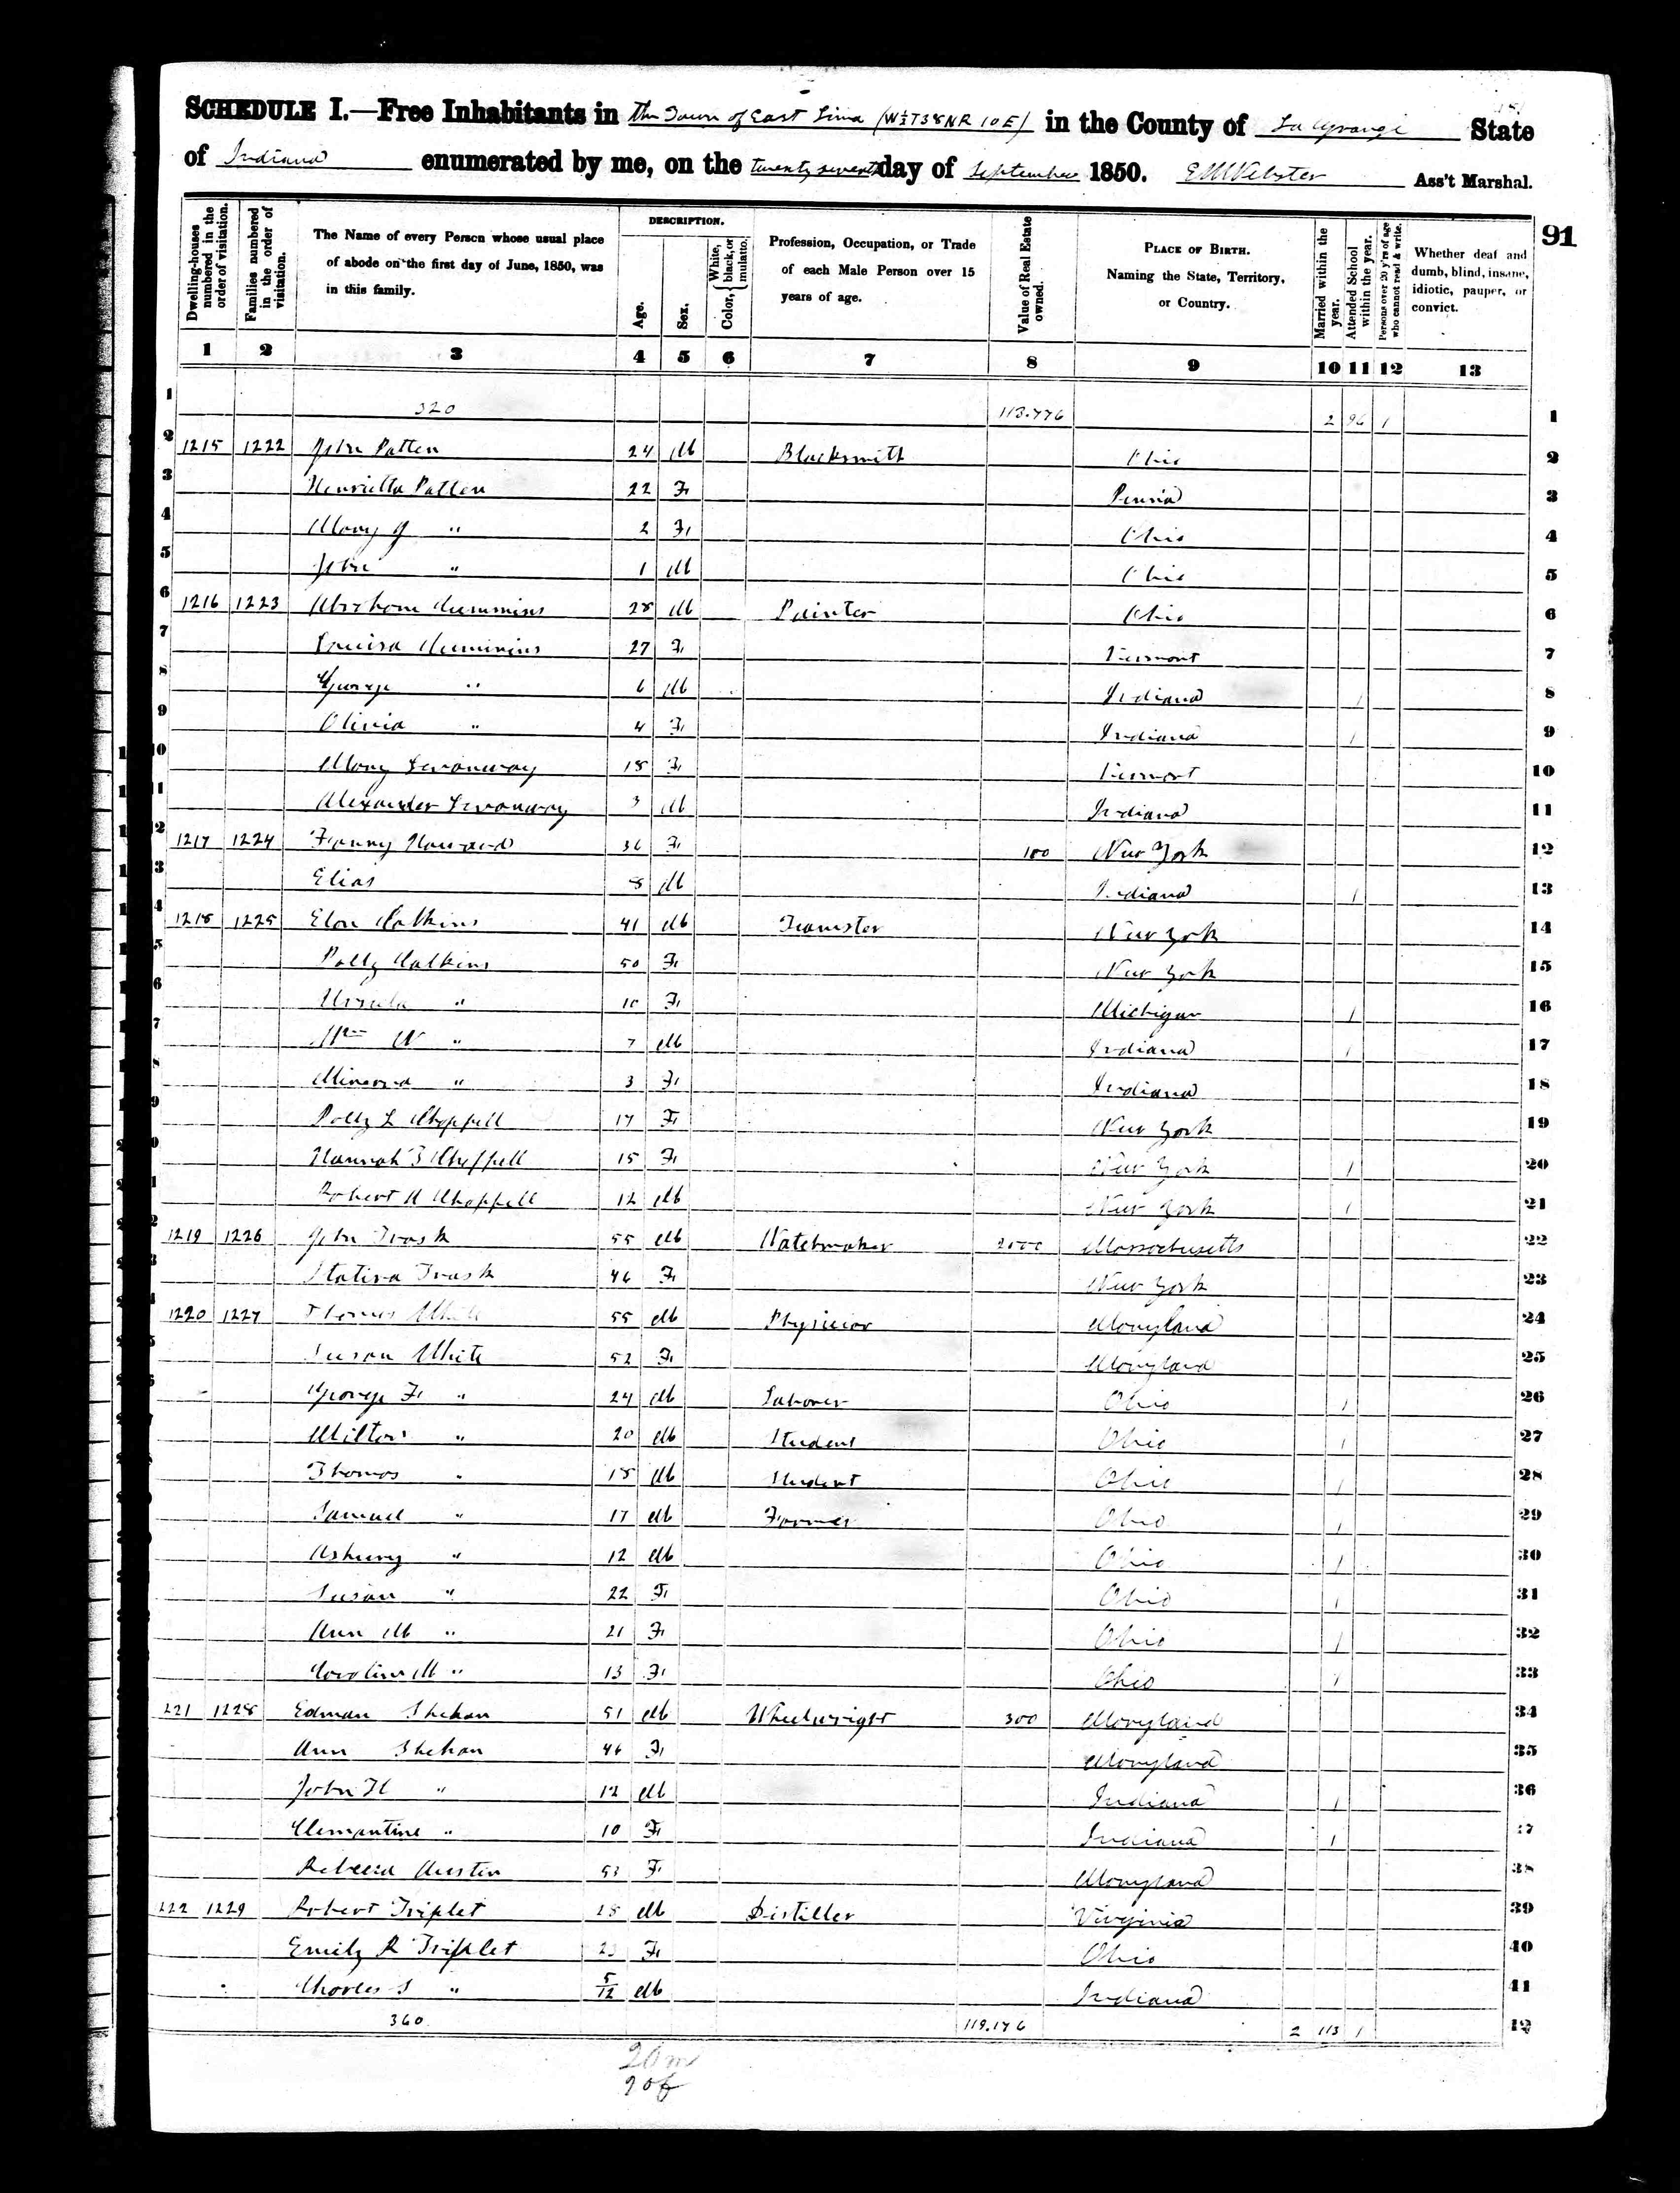 SCHEDULE I.—Free Inhabitants in the Town of East Lima (W½T38NR 10E) in the County of LaGrange State
of Indiana enumerated by me, on the twenty seventh day of September 1850. E M Webster Ass't Marshal.
91
Dwelling-houses numbered in the order of visitation.
Families numbered in the order of visitation.
The Name of every Person whose usual place of abode on the first day of June, 1850, was in this family.
DESCRIPTION.
Age.
Sex.
Color, { White, black, or mulatto.
Profession, Occupation, or Trade of each Male Person over 15 years of age.
Value of Real Estate owned.
PLACE OF BIRTH. Naming the State, Territory, or Country.
Married within the year.
Attended School within the year.
Persons over 20 y'rs of age who cannot read & write.
Whether deaf and dumb, blind, insane, idiotic, pauper, or convict.
1 2 3 4 5 6 7 8 9 10 11 12 13
1 320 2 96 1 1
2 1215 1222 John Patten 24 M Blacksmith Ohio 2
3 Henrietta Patten 22 F Penna 3
4 Mary J " 2 F Ohio 4
5 John " 1 M Ohio 5
6 1216 1223 Abraham Cummins 28 M Painter Ohio 6
7 Louisa Cummins 27 F Vermont 7
8 George " 6 M Indiana 1 8
9 Olivia " 4 F Indiana 1 9
10 Mary 18 F Vermont 10
11 Alexander 3 M Indiana 11
12 1217 1224 Fanny Howard 36 F 100 New York 12
13 Elias 8 M Indiana 1 13
14 1218 1225 Elon Calkins 41 M Teamster New York 14
15 Polly Calkins 50 F New York 15
16 Ursula " 10 F Michigan 1 16
17 Wm W " 7 M Indiana 1 17
18 Minerva " 3 F Indiana 18
19 Polly L Chappell 17 F New York 19
20 Hannah Chappell 15 F New York 1 20
21 Robert Chappell 12 M New York 1 21
22 1219 1226 John Trask 55 M Watchmaker 2000 Massachusetts 22
23 Statira Trask 46 F New York 23
24 1220 1227 Thomas White 55 M Physician Maryland 24
25 Susan White 52 F Maryland 25
26 George F " 24 M Laborer Ohio 1 26
27 Milton " 20 M Student Ohio 1 27
28 Thomas " 18 M Student Ohio 1 28
29 Samuel " 17 M Farmer Ohio 1 29
30 Asbury " 12 M Ohio 1 30
31 Susan " 22 F Ohio 1 31
32 Ann M " 21 F Ohio 1 32
33 Caroline M " 13 F Ohio 1 33
221 1228 Edman Shehan 51 M Wheelwright 300 Maryland 34
Ann Shehan 46 F Maryland 35
John H " 12 M Indiana 1 36
Clemantine " 10 F Indiana 1 37
Rebecca Austin 53 F Maryland 38
222 1229 Robert Triplet 28 M Distiller Virginia 39
Emily R Triplet F Ohio 40
Charles S " 5/12 M Indiana 41
360 119.176 2 113 1 42
20 m
20 f